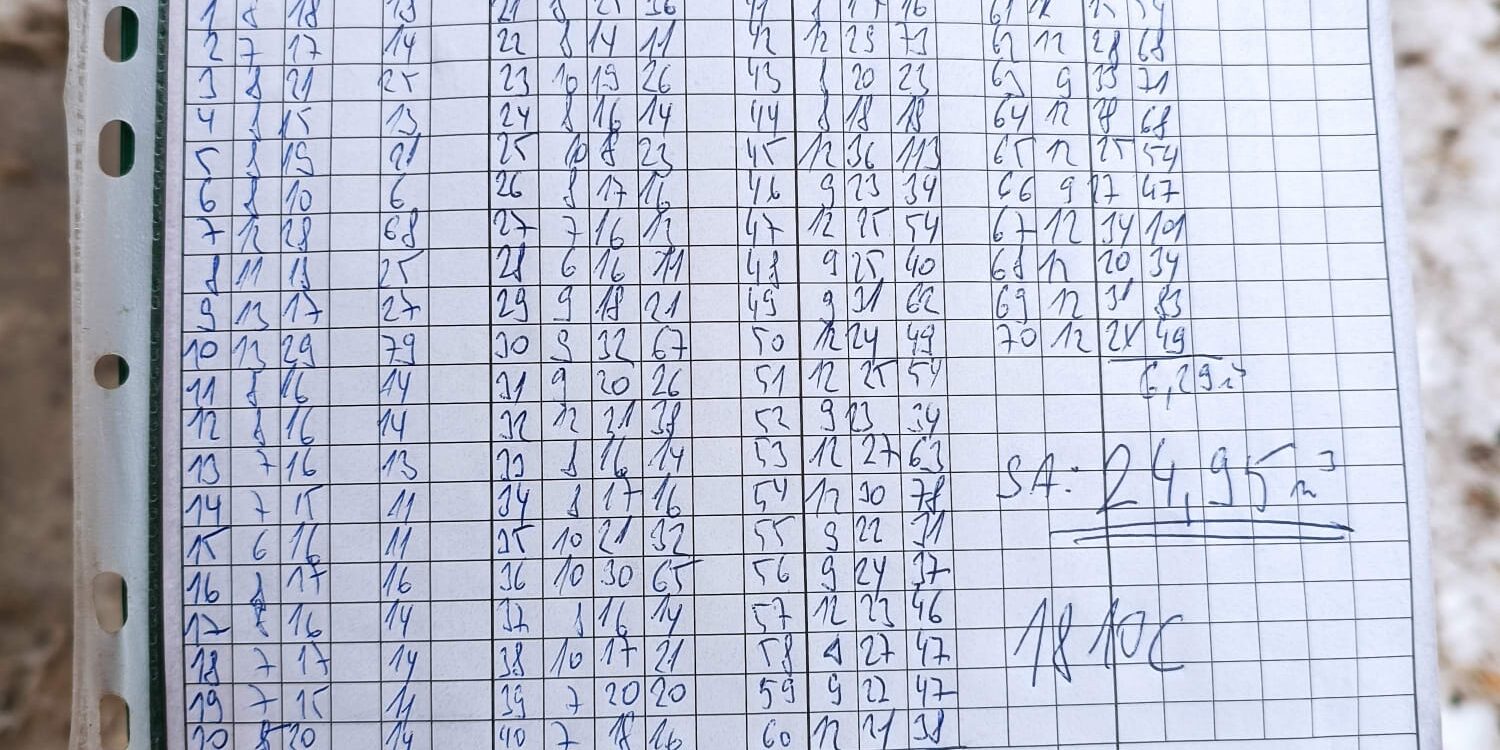 1 8 18 21 8 36 41 8 17 16 61 12 25 54
2 7 17 14 22 8 14 11 42 12 29 73 62 12 28 68
3 8 21 25 23 10 19 26 43 8 20 23 63 9 33 71
4 8 15 13 24 8 16 14 44 8 18 18 64 12 28 68
5 8 19 21 25 10 8 23 45 12 36 113 65 12 25 54
6 8 10 6 26 8 17 16 46 9 23 34 66 9 27 47
7 12 28 68 27 7 16 13 47 12 25 54 67 12 34 101
8 11 18 25 28 6 16 11 48 9 25 40 68 12 20 34
9 13 17 27 29 9 18 21 49 9 31 62 69 12 31 83
10 13 29 79 30 9 32 67 50 12 24 49 70 12 24 49
11 8 16 14 31 9 20 26 51 12 25 54 6,29
12 8 16 14 32 12 21 38 52 9 23 34
13 7 16 13 33 8 16 14 53 12 27 63 SA: 24,95 m³
14 7 15 11 34 8 17 16 54 12 30 78
15 6 16 11 35 10 21 32 55 9 22 31
16 8 17 16 36 10 30 65 56 9 24 37
17 8 16 14 37 8 16 14 57 12 23 46 1810C
18 7 17 14 38 10 17 21 58 27 47
19 7 15 11 39 7 20 20 59 9 22 47
20 20 14 40 7 18 16 60 12 21 38